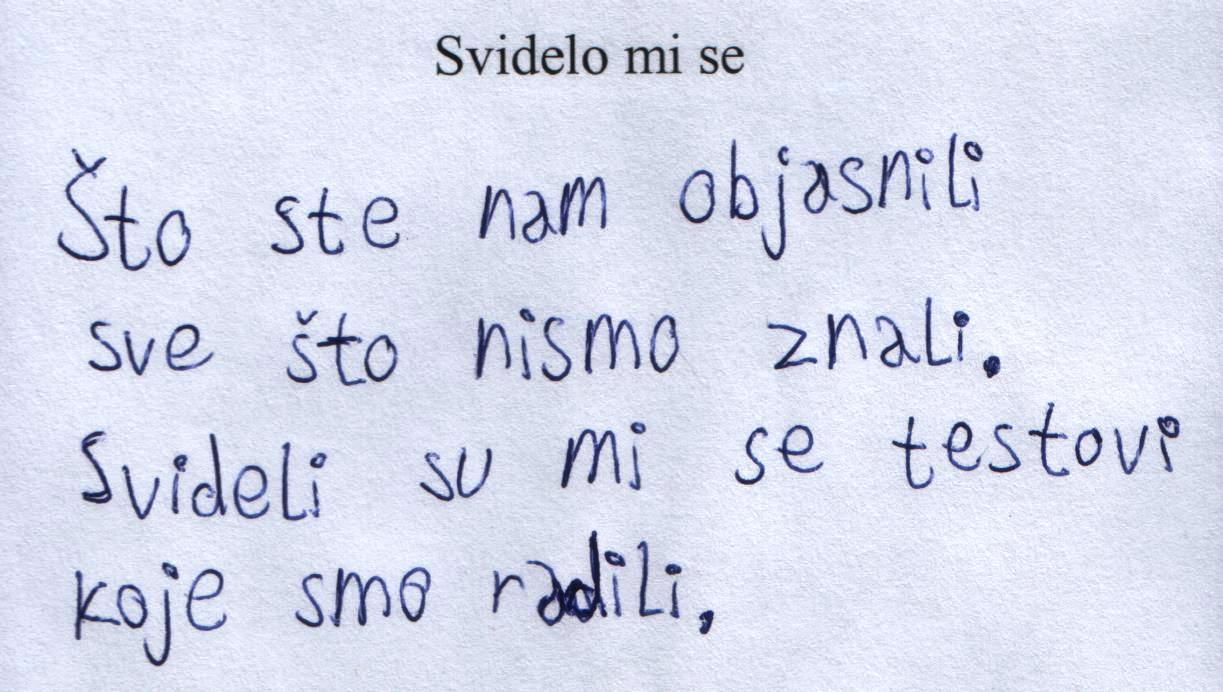 Svidelo mi se
Što ste nam objasnili
sve što nismo znali.
Svideli su mi se testovi
koje smo radili.